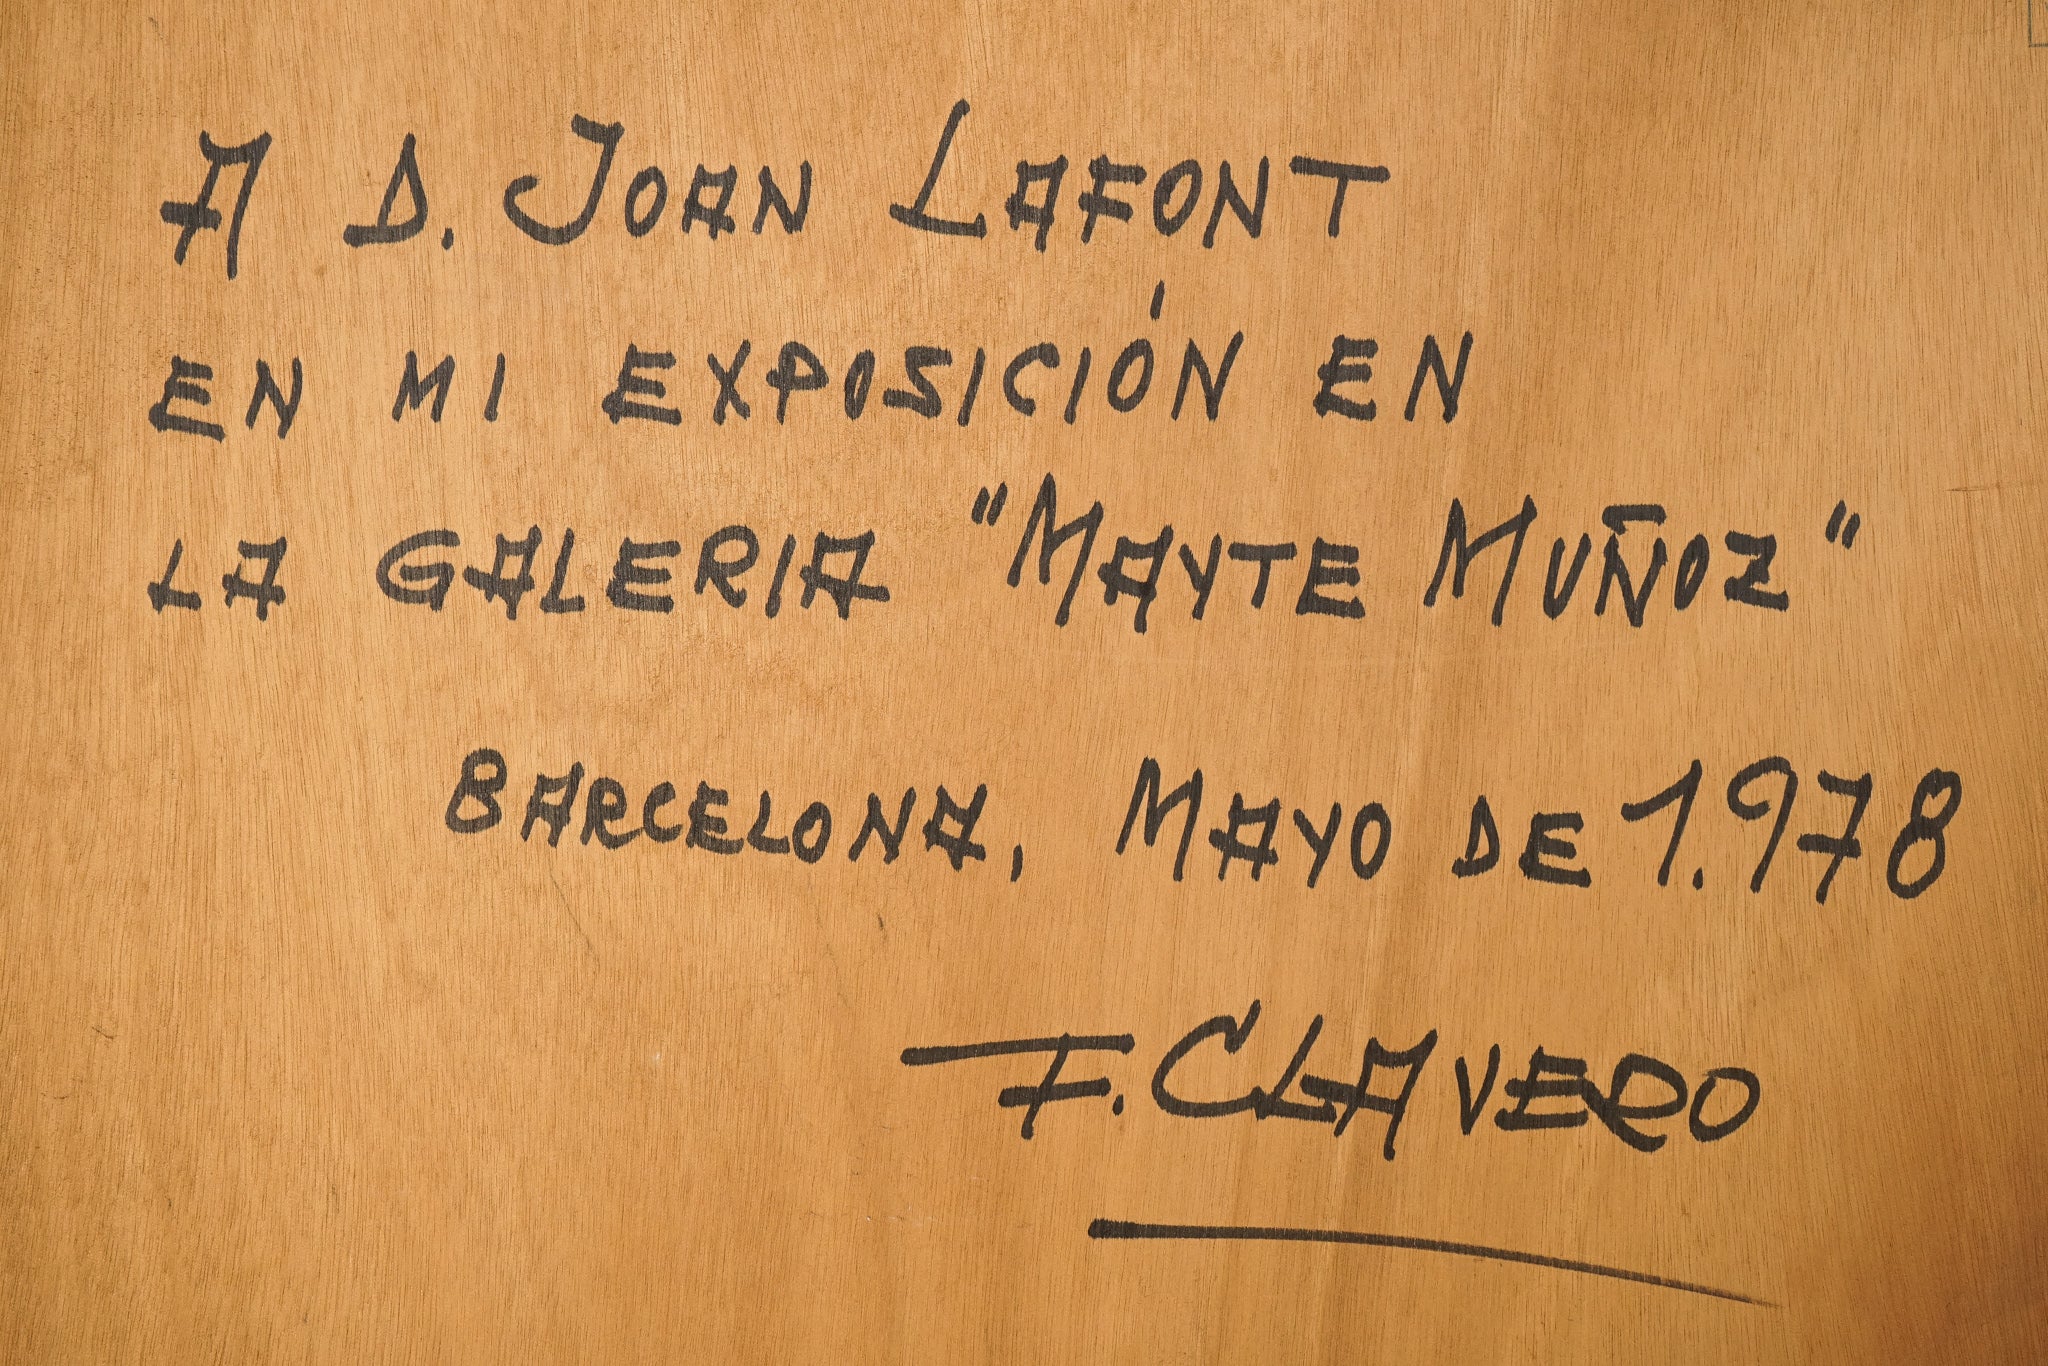 A D. JOAN LAFONT
EN MI EXPOSICIÓN EN
LA GALERIA "MAYTE MUÑOZ"
BARCELONA, MAYO DE 1.978
F. CLAVERO